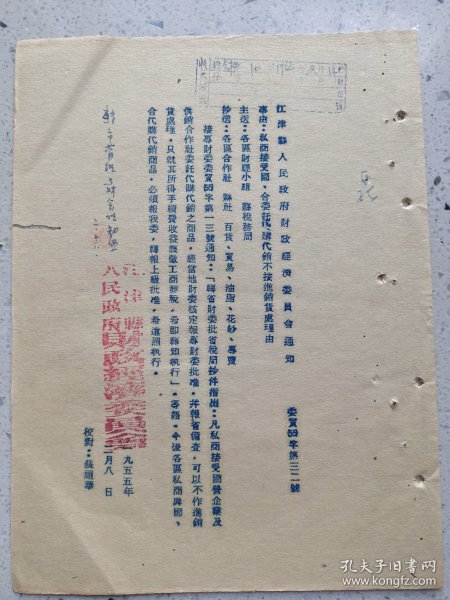 江津縣人民政府財政經濟委員會通知
委貿四字第三二號
事由：私商接受國、合委託代購代銷不按進銷貨處理由
主送：各區財經小組 縣稅務局
抄送：各區合作社 縣社 百貨、貿易、油脂、花紗、專賣
接專財委委貿四字第一三號通知：「轉省財委批省稅局抄件指出：凡私商接受國營企業及
供銷合作社委託代購代銷之商品，經當地財委核定報專財委批准，并報省備查，可以不作進銷
貨處理，只就其所得手續費收益徵工商業稅，希即轉知執行」。等語。今後各區私商與國、
合代購代銷商品，必須報我委，轉報上級批准，希遵照執行。
江津縣
人民政府財政經濟委員會
一九五五年
二月八日
校對：蘇
孔夫子旧书网
www.kongfz.com